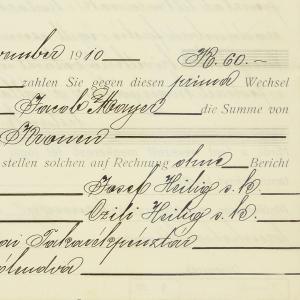 ovember 1910 K. 60.~
zahlen Sie gegen diesen prima Wechsel
Jacob Mayer die Summe von
Kronen
stellen solchen auf Rechnung ohne Bericht
Josef Heilig s. k.
Czili Heilig s. k.
ai Takarékpénztár
ólendva